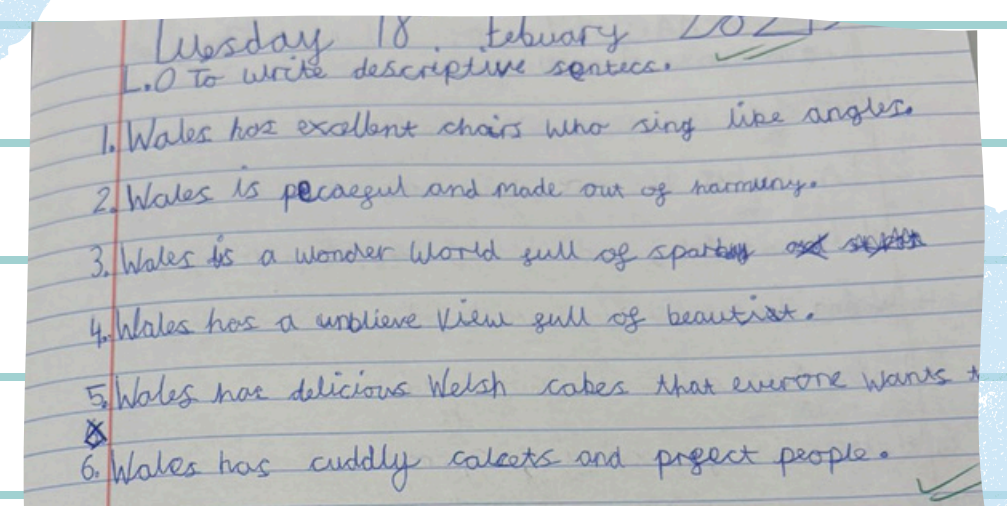 Tuesday 18 . tebuary
L.O To write descriptive sentecs.
1. Wales has excellent choirs who sing like angles.
2. Wales is pecaeful and made out of harmuny.
3. Wales is a wonder World full of
4. Wales has a unblieve view full of beautist.
5. Wales has delicious Welsh cakes that everone wants
6. Wales has cuddly calcets and prfect people.